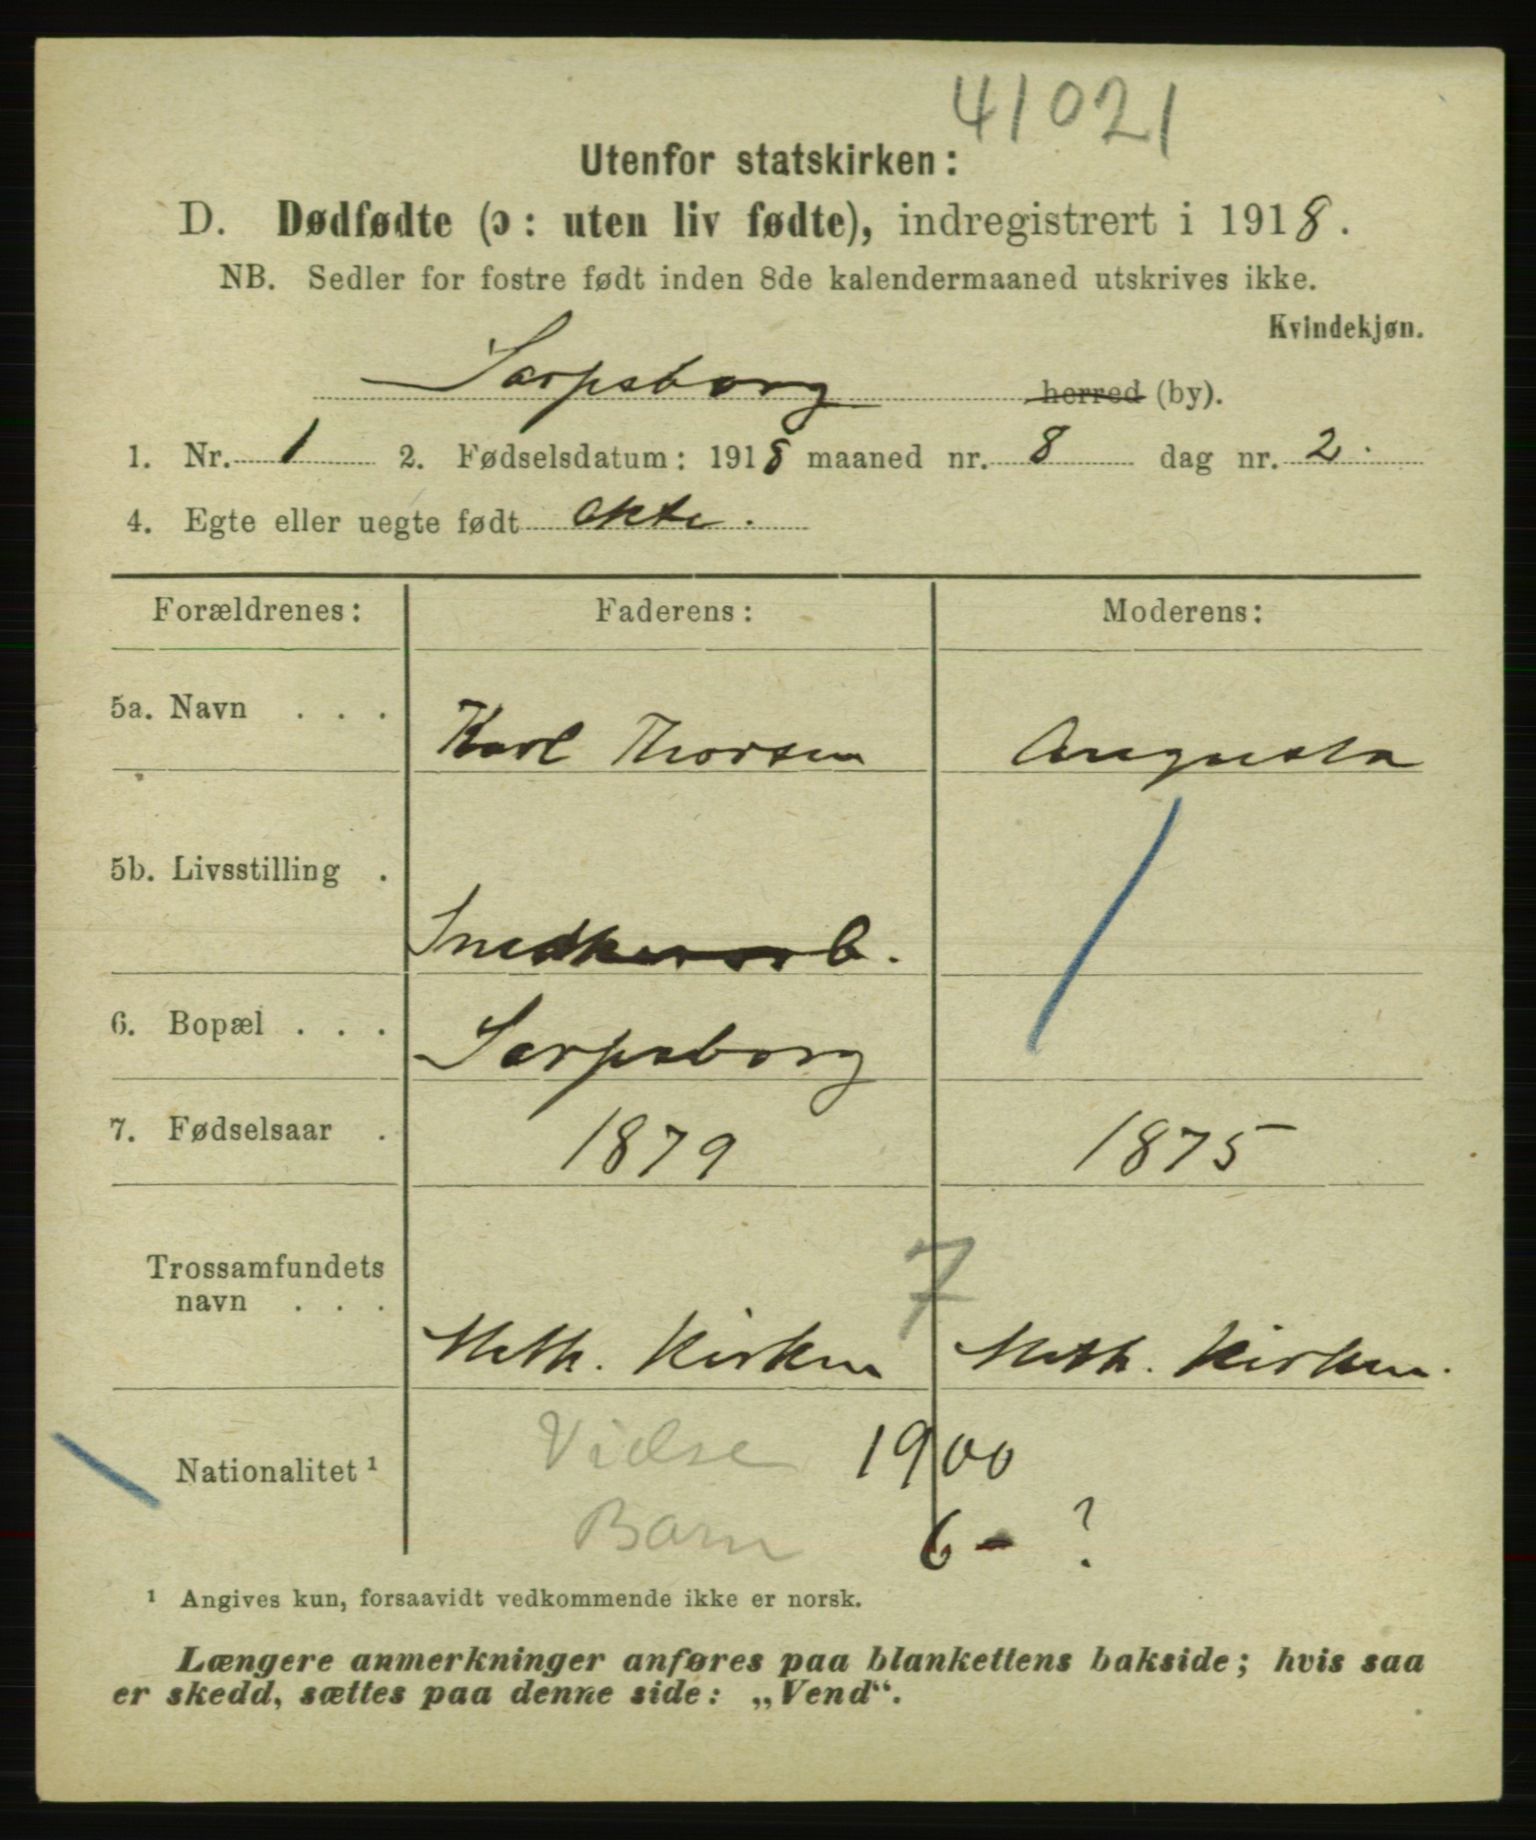 41021
Utenfor statskirken:
D. Dødfødte (ɔ: uten liv fødte), indregistrert i 1918.
NB. Sedler for fostre født inden 8de kalendermaaned utskrives ikke.
Kvindekjøn.
Sarpsborg herred (by).
1. Nr. 1 2. Fødselsdatum: 1918 maaned nr. 8 dag nr. 2.
4. Egte eller uegte født ekte.
Forældrenes: Faderens: Moderens:
5a. Navn . . . Karl Thorsen Augusta
5b. Livsstilling . Snedkerarb.
6. Bopæl . . . Sarpsborg
7. Fødselsaar . 1879 1875
7
Trossamfundets
navn . . . Meth. Kirken Meth. Kirken.
Nationalitet ¹ Vielse 1900
Barn 6 - ?
¹ Angives kun, forsaavidt vedkommende ikke er norsk.
Længere anmerkninger anføres paa blankettens bakside; hvis saa
er skedd, sættes paa denne side: „Vend“.